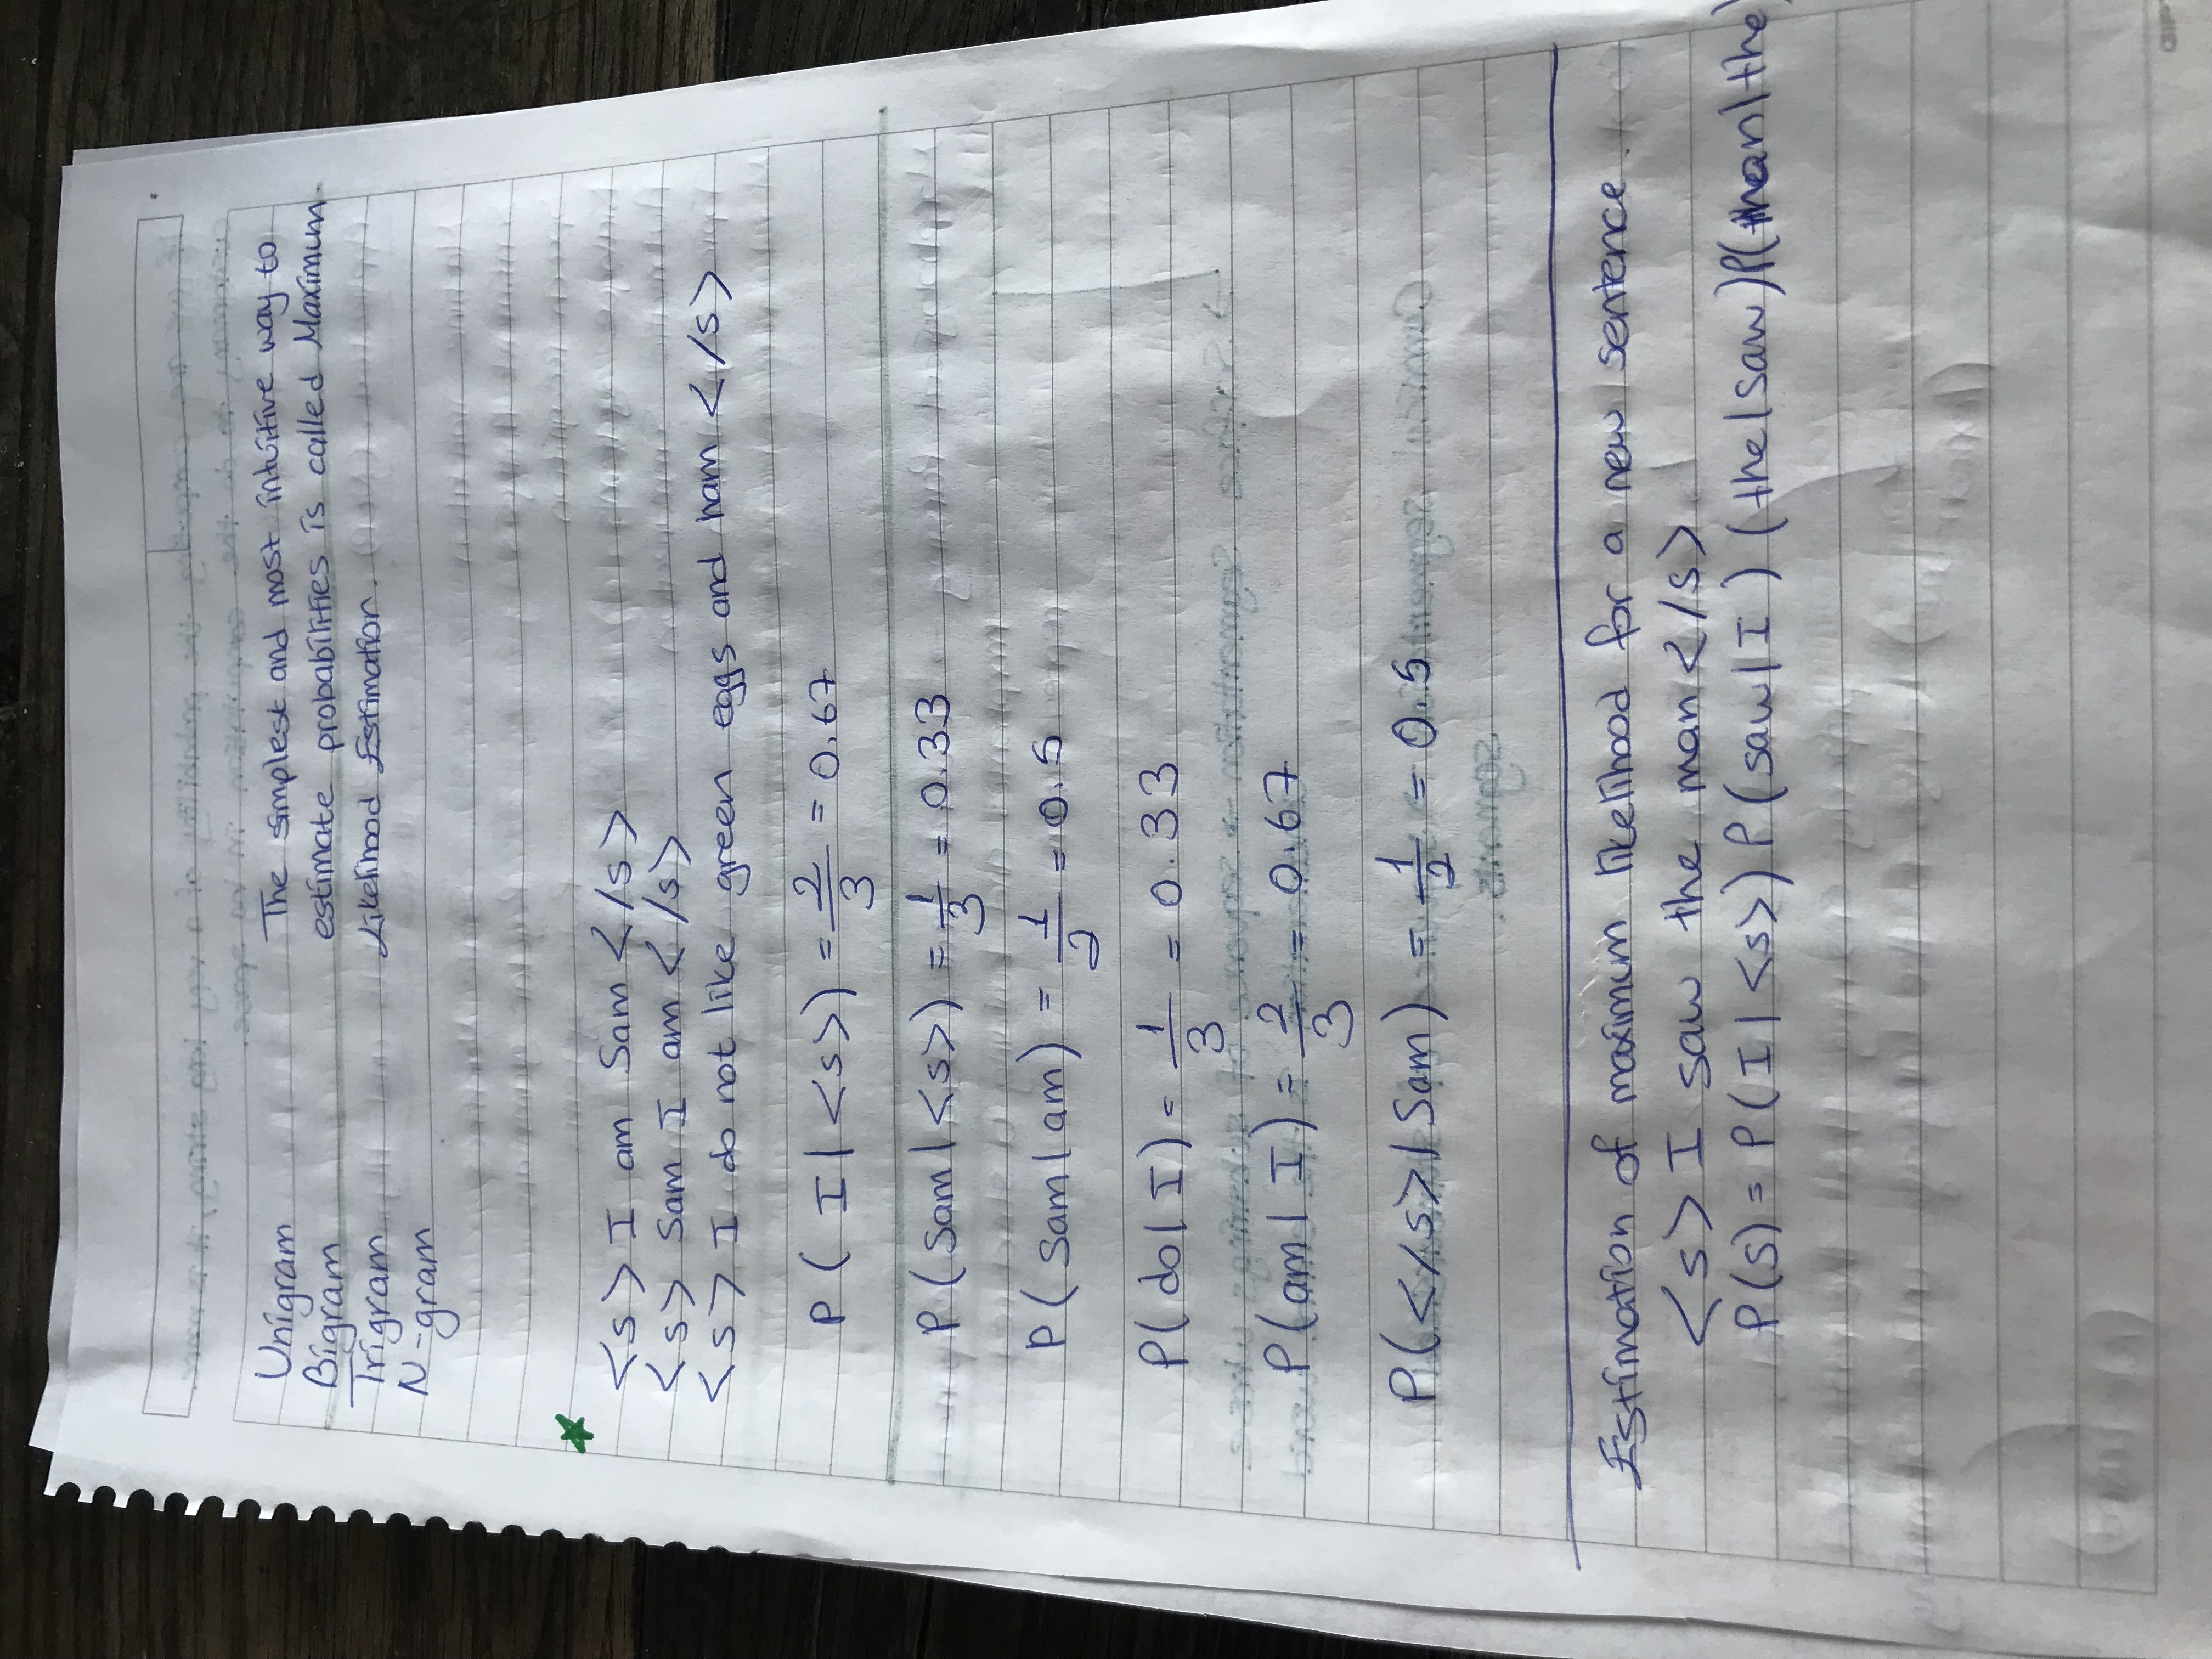 Unigram
Bigram
Trigram
N-gram
The simplest and most intuitive way to
estimate probabilities is called Maximum
Likelihood Estimation.
<s> I am Sam </s>
<s> Sam I am </s>
<s> I do not like green eggs and ham </s>
P( I | <s>) = 2/3 = 0.67
P( Sam | <s>) = 1/3 = 0.33
P( Sam | am) = 1/2 = 0.5
P( do | I ) = 1/3 = 0.33
P( am | I ) = 2/3 = 0.67
P(</s> | Sam) = 1/2 = 0.5
Estimation of maximum likelihood for a new sentence.
<s> I saw the man </s>
P(s) = P( I | <s>) P( saw | I ) ( the | saw ) P( man | the )